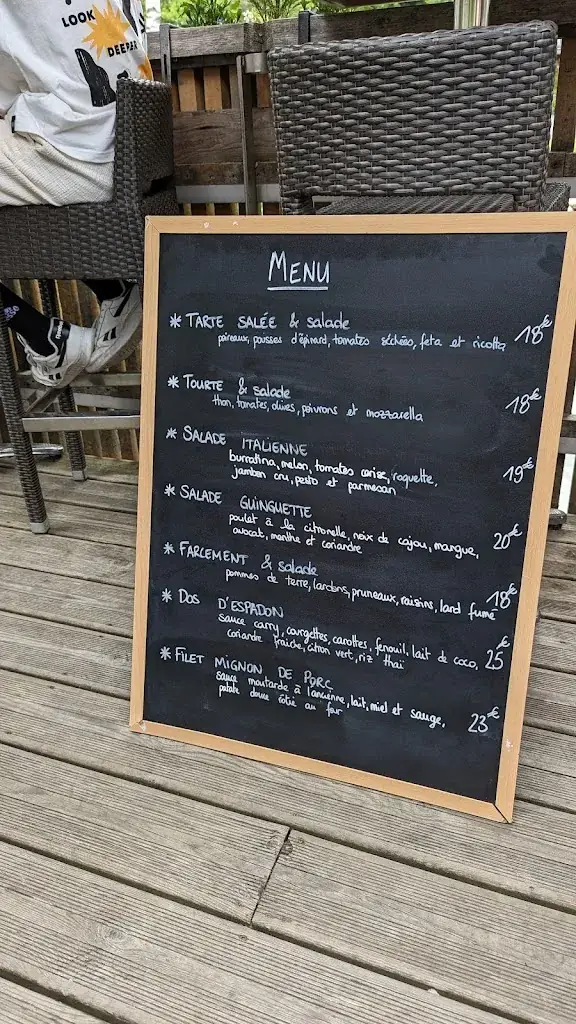 LOOK
DEEPER
MENU
* TARTE SALÉE & salade
poireaux, pousses d'épinard, tomates séchées, feta et ricotta 18€
* TOURTE & salade
thon, tomates, olives, poivrons et mozzarella 18€
* SALADE ITALIENNE
burratina, melon, tomates cerise, roquette, 19€
jambon cru, pesto et parmesan
* SALADE GUINGUETTE
poulet à la citronelle, noix de cajou, mangue, 20€
avocat, menthe et coriandre
* FARCEMENT & salade
pommes de terre, lardons, pruneaux, raisins, lard fumé 18€
* DOS D'ESPADON
sauce carry, courgettes, carottes, fenouil, lait de coco, 25€
coriandre fraiche, citron vert, riz thaï
* FILET MIGNON DE PORC
sauce moutarde à l'ancienne, lait, miel et sauge, 23€
patate douce rôtie au four